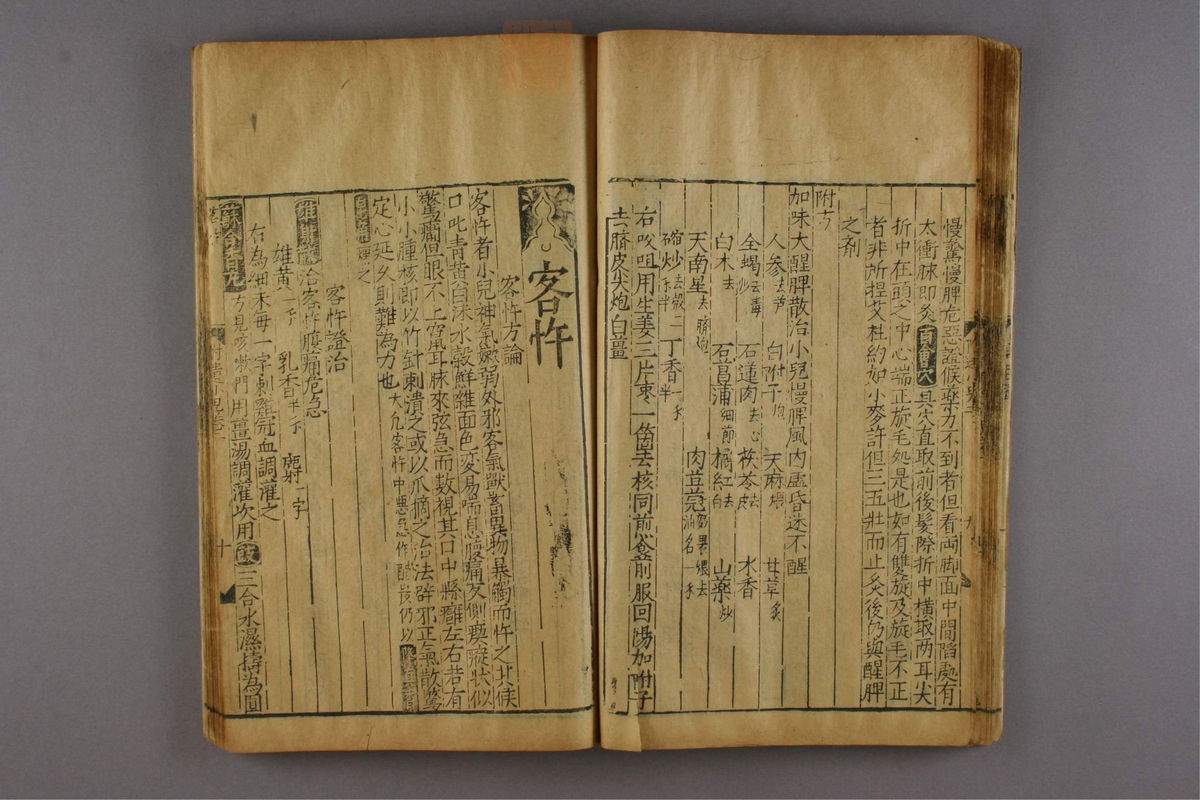 慢驚慢脾危惡證候藥力不到者但看両脚面中間陷處有
太衝脉即灸百會穴其穴直取前後髮際折中横取两耳尖
折中在頭之中心端正旋毛処是也如有雙旋及旋毛不正
者非所捏艾杜約如小麥許但三五壯而止灸後仍與醒脾
之剤
附方
加味大醒脾散治小兒慢脾風内虛昏迷不醒
人参去芦 白附子炮 天麻煨 甘草炙
全蝎去毒炒 石蓮肉去心 茯苓去皮 木香
白术去 石菖蒲細節 橘紅去白 山藥炒
天南星去臍 肉荳蔲
丁香
右㕮咀用生姜三片枣一箇去核同煎空前服回陽加附子
去臍皮尖炮白薑
客忤
客忤方論
客忤者小兒神氣嫩弱外邪客氣獸畜異物暴觸而忤之其候
口吐青黄白沫水穀鮮雜面色变易喘息腹痛反側瘈瘲状似
驚癇但眼不上竄耳脉來弦急而数視其口中懸癰左右若有
小小腫核即以竹針刺潰之或以爪摘之治法辟邪正氣散驚
定心延久則難為力也大凢客忤中惡急作仍以
之
客忤證治
治客忤腹痛危急
雄黄一 乳香半 麝一字
右為細末每一字刺雞冠血調灌之
蘇合香圓方見咳嗽門用薑湯調灌次用三合水濕擣為圓
十